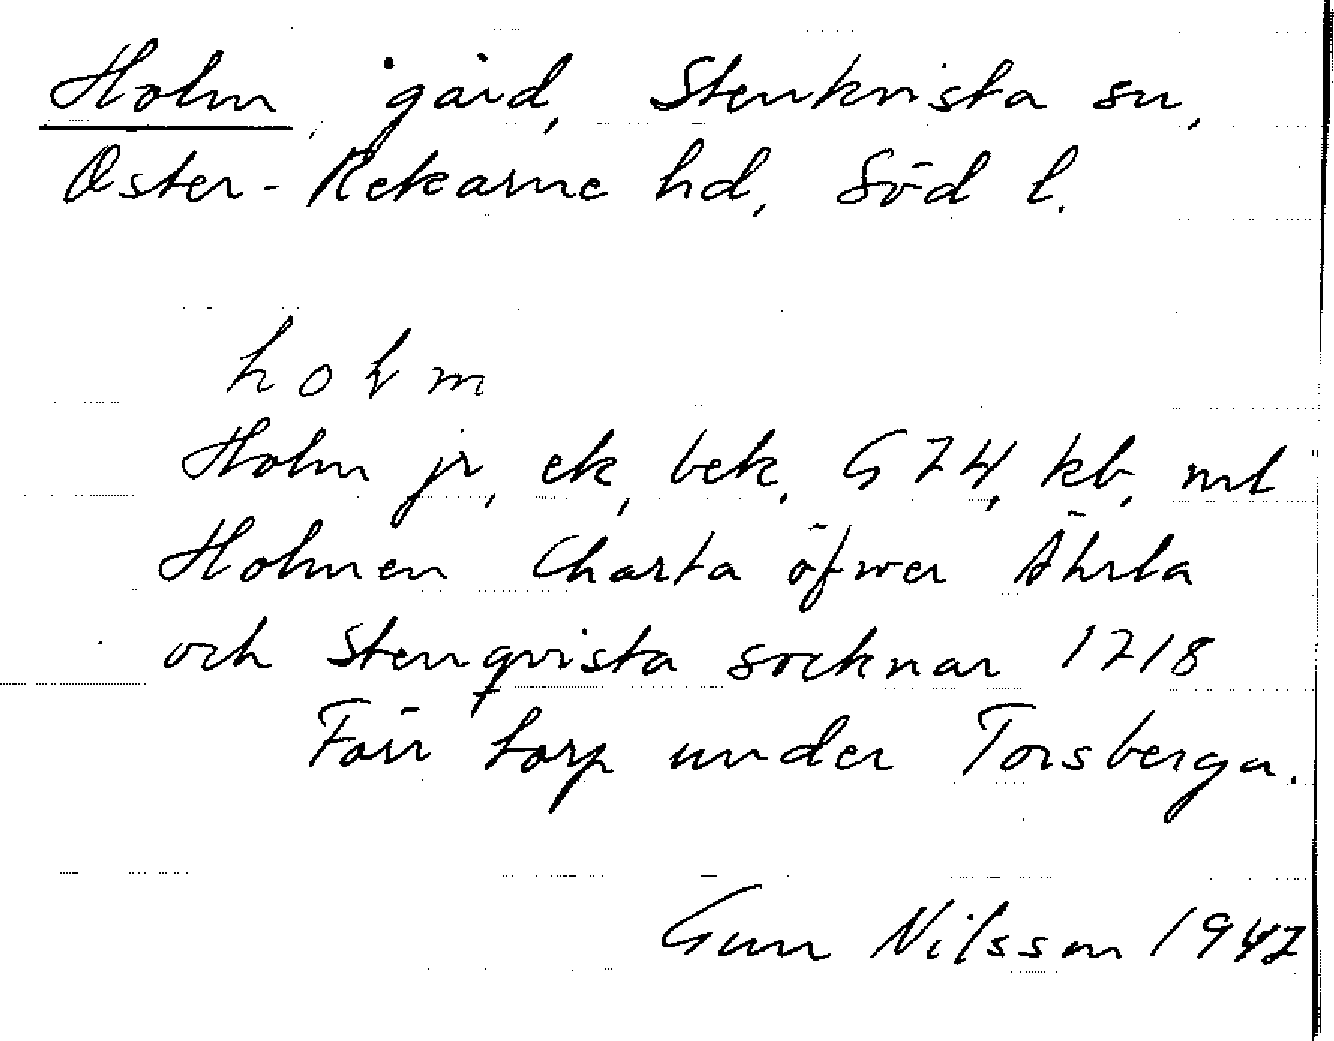 Holm, gård, Stenkvista sn,
Öster-Rekarne hd, Söd l.
holm
Holm jr, ek, bek, G 74, kb, ml
Holmen Charta öfwer Ährla
och Stenqvista socknar 1718
Förr torp under Torsberga.
Gun Nilsson 1947